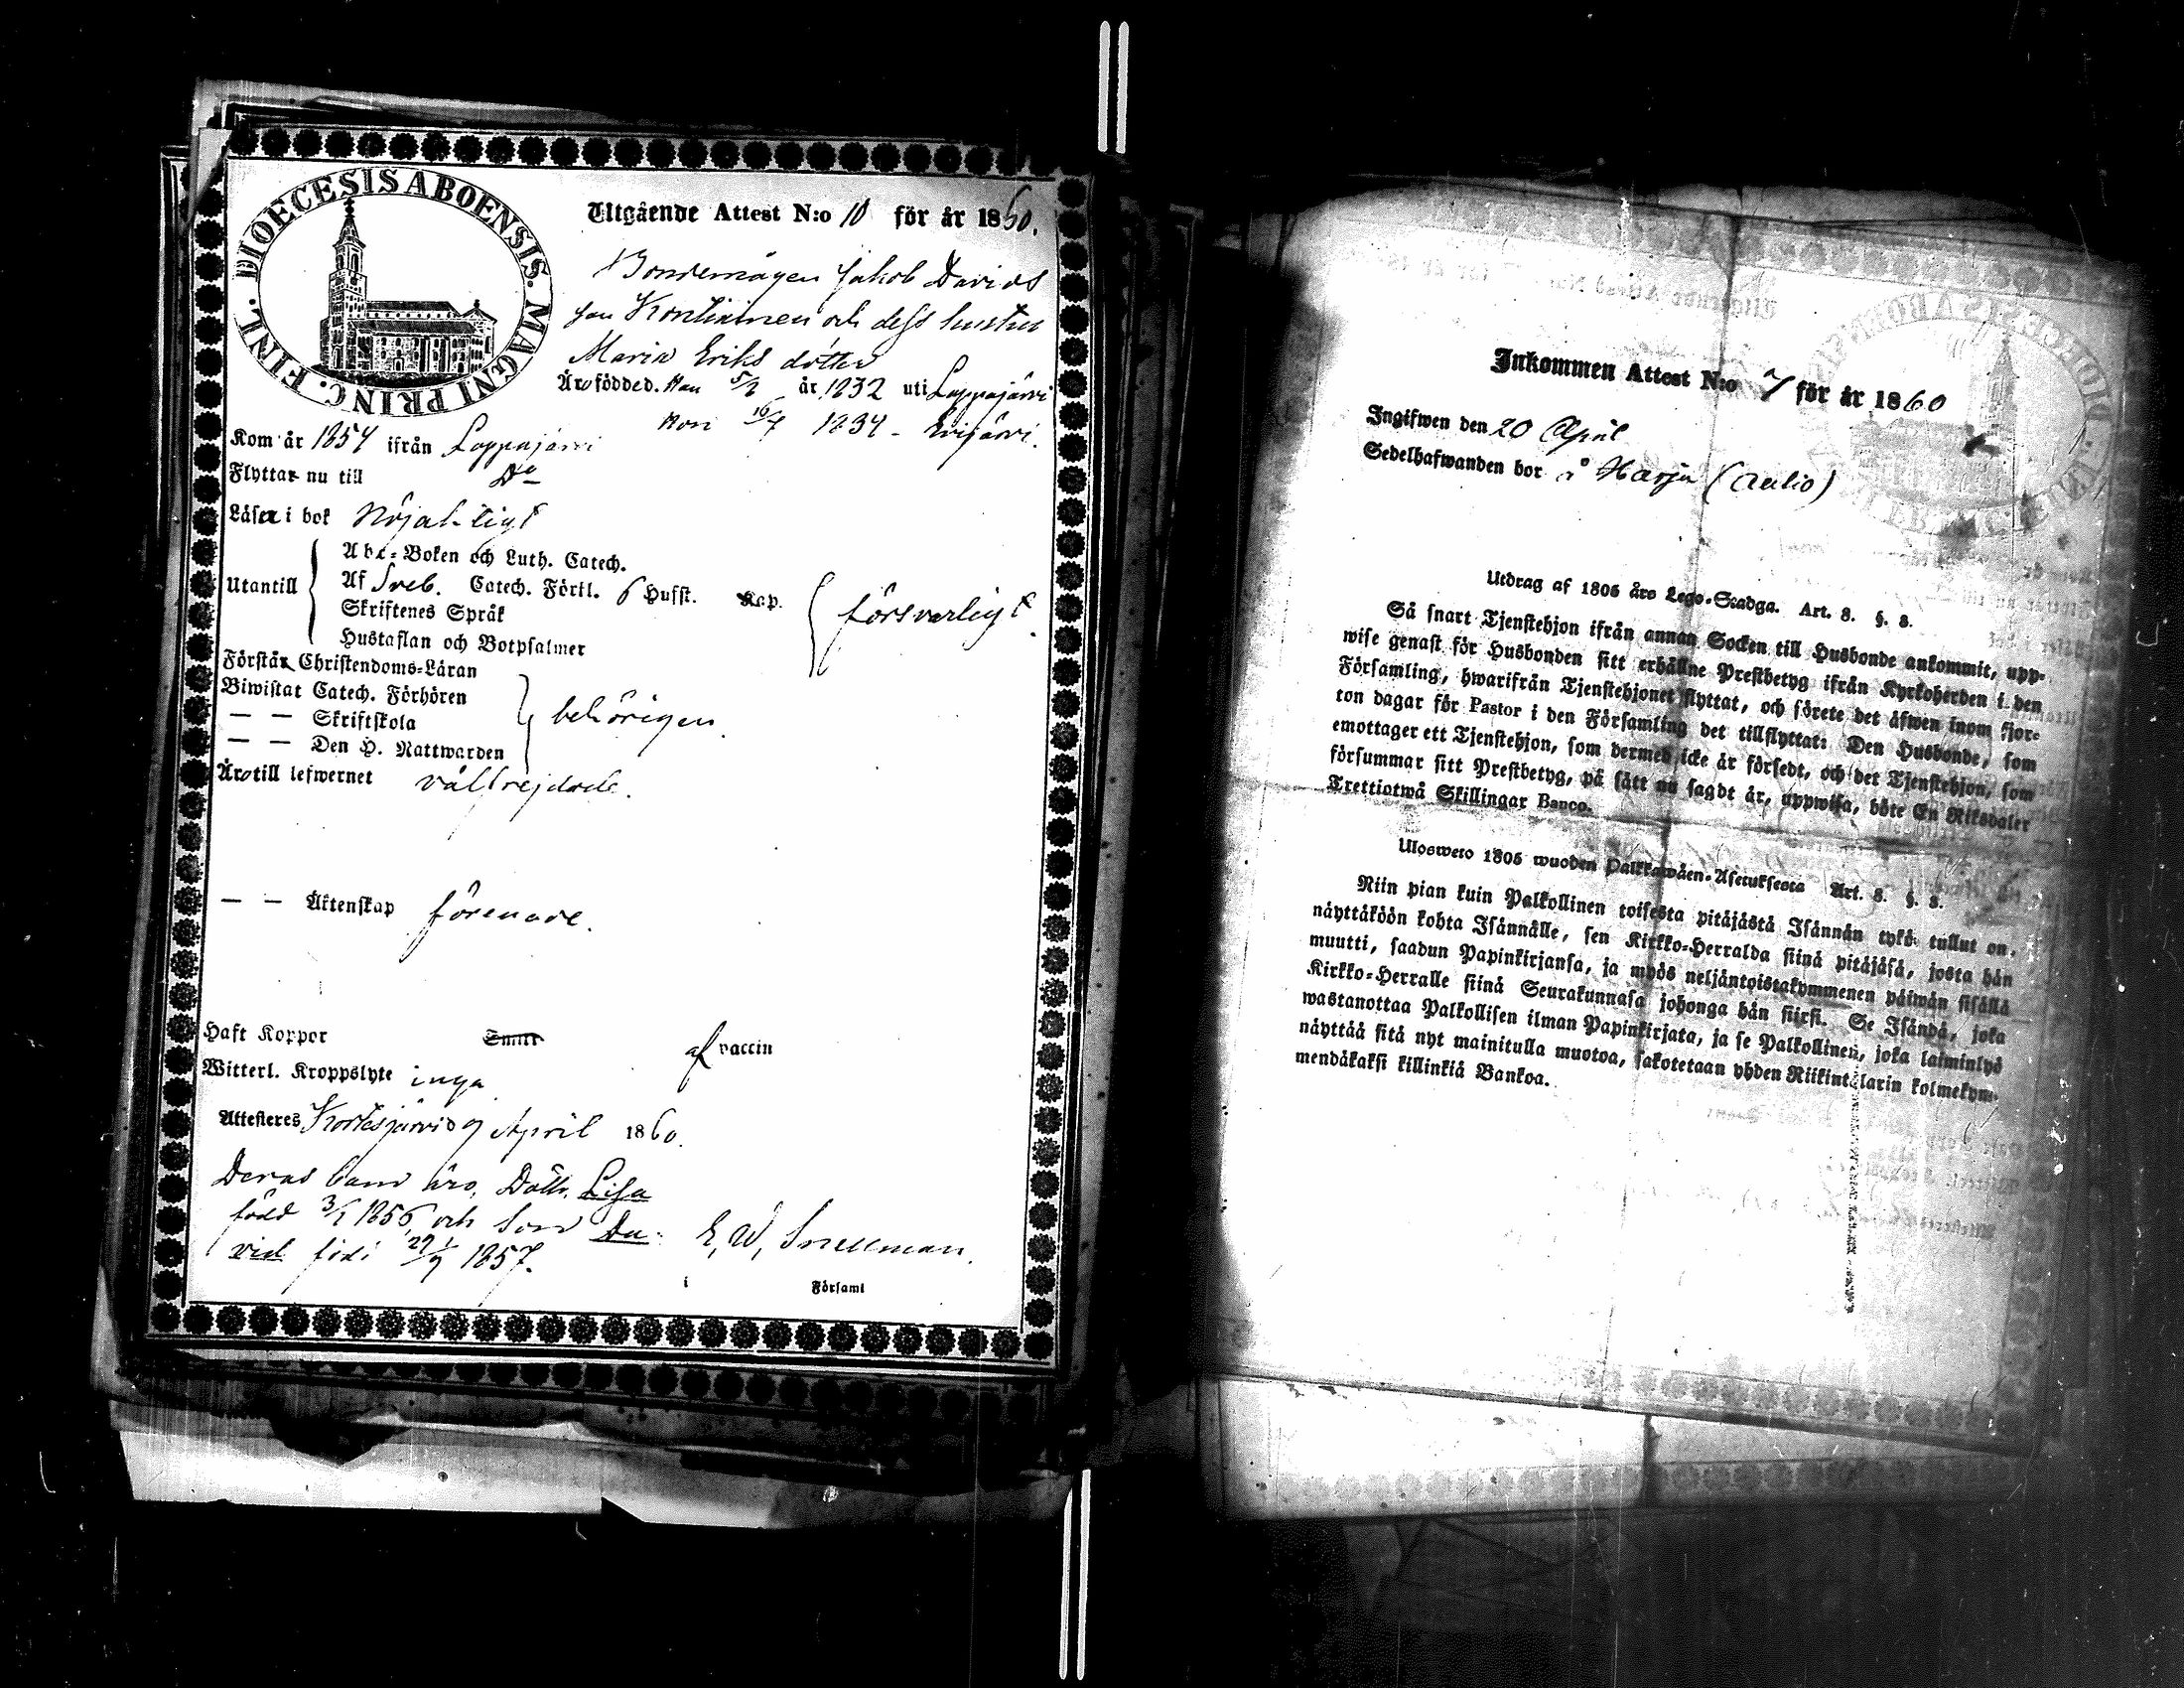 DIOECESIS ABOENSIS. MAGNI PRINC. FINL.
Utgående Attest N:o 10 för år 1860.
Bondemågen Jakob Davids
son Kontiainen och dess hustru
Maria Eriks dotter
Äro födde d. Han 5/2 år 1832 uti Lappajärvi
Hon 16/4 1834 - Evijärvi.
Kom år 1854 ifrån Lappajärvi
Flyttar nu till Do
Läser i bok Nöjaktigt
Utantill
Abc-Boken och Luth. Catech.
Af Sveb. Catech. Förkl. 6 Hufst. Kap.
försvarligt.
Skriftenes Språk
Hustaflan och Botpsalmer
Förstår Christendoms-Läran
Biwistat Catech. Förhören
— — Skriftskola
behörigen.
— — Den H. Nattwarden
Äro till lefwernet välfrejdade.
— — Äktenskap förenade.
Haft Koppor af vaccin
Witterl. Kroppslyte inga
Attesteres Kortesjärvi d 9 April 1860.
Deras barn äro, Dottr. Lisa
född 3/1 1856, och Son Da-
vid född 29/9 1857.
E, W, Snellman.
i Församl
Inkommen Attest N:o 7 för år 1860
Ingifwen den 20 April
Sedelhafwanden bor å Harju (Aulio)
Utdrag af 1805 års Lego-Stadga. Art. 8. §. 8.
Så snart Tjenstehjon ifrån annan Socken till Husbonde ankommit, upp-
wise genast för Husbonden sitt erhållne Prestbetyg ifrån Kyrkoherden i den
Församling, hwarifrån Tjenstehjonet flyttat, och förete det äfwen inom fjor-
ton dagar för Pastor i den Församling det tillflyttat: Den Husbonde, som
emottager ett Tjenstehjon, som dermed icke är försedt, och det Tjenstehjon, som
försummar sitt Prestbetyg, på sätt nu sagdt är, uppwisa, böte En Riksdaler
Trettiotwå Skillingar Banco.
Ulosweto 1805 wuoden Palkkawäen-Asetuksesta Art. 8. §. 8.
Niin pian kuin Palkollinen toisesta pitäjästä Isännän tykö tullut on,
näyttäköön kohta Isännälle, sen Kirkko-Herralda siinä pitäjäsä, josta hän
muutti, saadun Papinkirjansa, ja myös neljäntoistakymmenen päiwän sisällä
Kirkko-Herralle siinä Seurakunnasa johonga hän siirsi. Se Isändä, joka
wastanottaa Palkollisen ilman Papinkirjata, ja se Palkollinen, joka laiminlyö
näyttää sitä nyt mainitulla muotoa, sakotetaan yhden Riikintalarin kolmekym-
mendäkaksi killinkiä Bankoa.